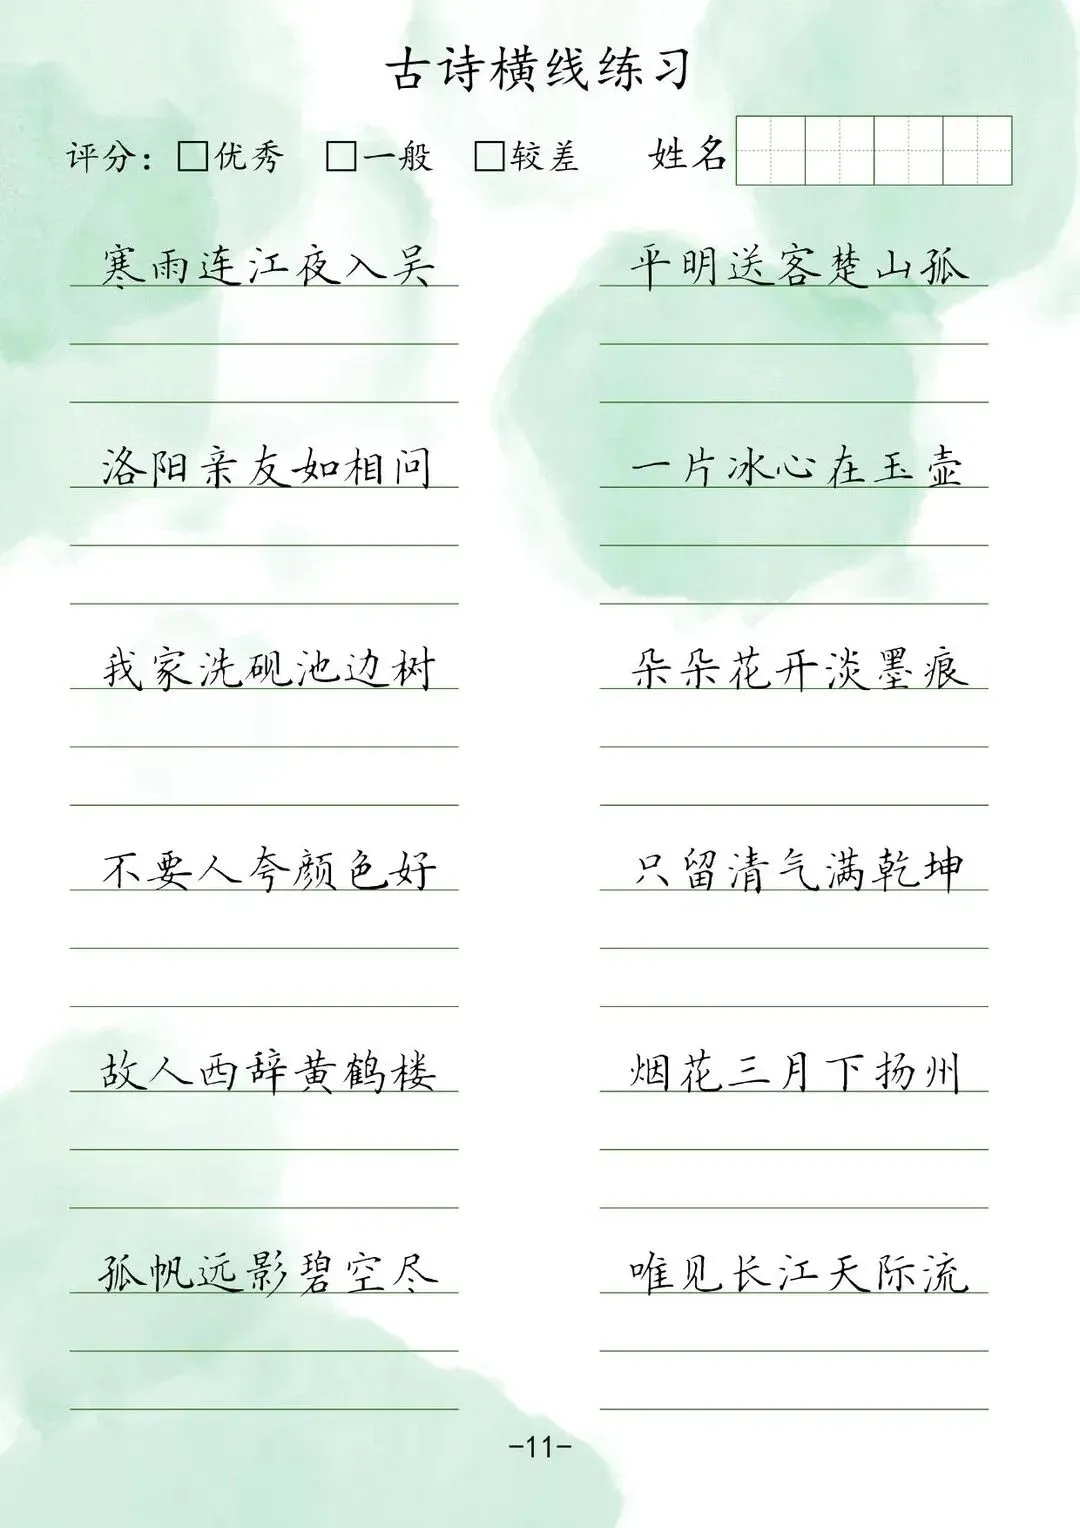 古诗横线练习
评分：□优秀 □一般 □较差 姓名
寒雨连江夜入吴 平明送客楚山孤
洛阳亲友如相问 一片冰心在玉壶
我家洗砚池边树 朵朵花开淡墨痕
不要人夸颜色好 只留清气满乾坤
故人西辞黄鹤楼 烟花三月下扬州
孤帆远影碧空尽 唯见长江天际流
-11-